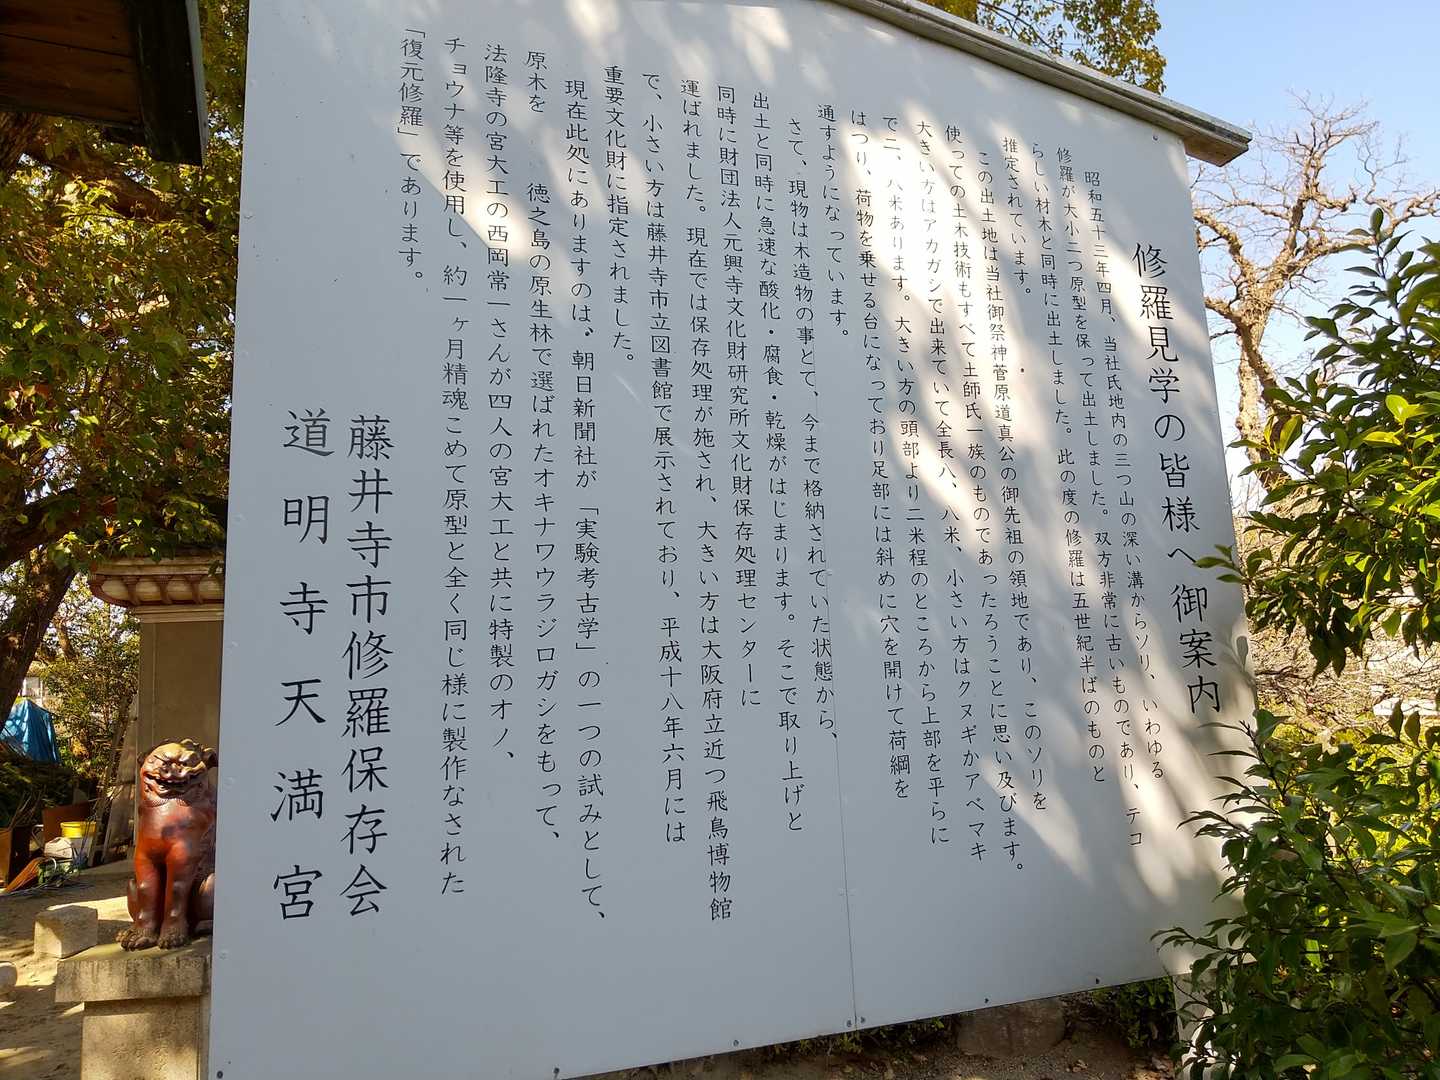 修羅見学の皆様へ御案内
昭和五十三年四月、当社氏地内の三つ山の深い溝からソリ、いわゆる
修羅が大小二つ原型を保って出土しました。双方非常に古いものであり、テコ
らしい材木と同時に出土しました。此の度の修羅は五世紀半ばのものと
推定されています。
この出土地は当社御祭神菅原道真公の御先祖の領地であり、このソリを
使っての土木技術もすべて土師氏一族のものであったろうことに思い及びます。
大きい方はアカガシで出来ていて全長八、八米、小さい方はクヌギかアベマキ
で二、八米あります。大きい方の頭部より二米程のところから上部を平らに
はつり、荷物を乗せる台になっており足部には斜めに穴を開けて荷綱を
通すようになっています。
さて、現物は木造物の事とて、今まで格納されていた状態から、
出土と同時に急速な酸化・腐食・乾燥がはじまります。そこで取り上げと
同時に財団法人元興寺文化財研究所文化財保存処理センターに
運ばれました。現在では保存処理が施され、大きい方は大阪府立近つ飛鳥博物館
で、小さい方は藤井寺市立図書館で展示されており、平成十八年六月には
重要文化財に指定されました。
現在此処にありますのは、朝日新聞社が「実験考古学」の一つの試みとして、
原木を　徳之島の原生林で選ばれたオキナワウラジロガシをもって、
法隆寺の宮大工の西岡常一さんが四人の宮大工と共に特製のオノ、
チョウナ等を使用し、約一ヶ月精魂こめて原型と全く同じ様に製作なされた
「復元修羅」であります。
藤井寺市修羅保存会
道明寺天満宮